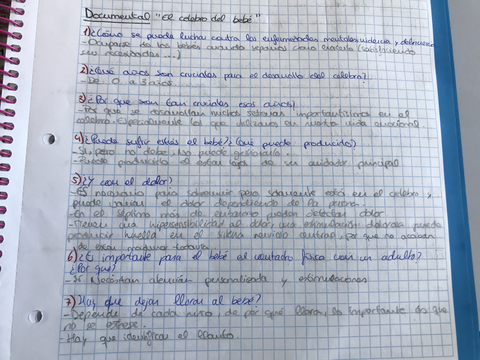 Documental "el celebro del bebé"
1) ¿Cómo se puede luchar contra las enfermedades mentales, violencia y delincuencia?
- Ocuparse de los bebés cuando
sus necesidades...)
2) ¿Qué años son cruciales para el desarrollo del celebro?
- De 0 a 3 años...
3) ¿Por qué son tan cruciales esos años?
- Por que se desarrollan muchos sistemas importantísimos en el
celebro. Especialmente los que utilizamos en nuestra vida emocional
4) ¿Puede sufrir estrés el bebé? ¿Qué puede producirlo?
- Si, pero no debe, no puede gestionarlo.
- Puede producirlo el estar lejos de su cuidador principal
5) ¿Y con el dolor?
- Es necesario para sobrevivir pero solamente está en el celebro y
puede variar el dolor dependiendo de la persona.
- En el séptimo mes de embarazo pueden detectar dolor
- Tienen una hipersensibilidad al dolor, una estimulación dolorosa puede
producir huella en el sistema nervioso central, por que no acaban
de estar maduros todavía
6) ¿Es importante para el bebé el contacto físico con un adulto?
¿Por qué?
- Si. Necesitan atención personalizada y estimulaciones
7) ¿Hay que dejar llorar al bebé?
- Depende de cada niño, de por qué llora, lo importante es que
no se estrese.
- Hay que identificar el llanto